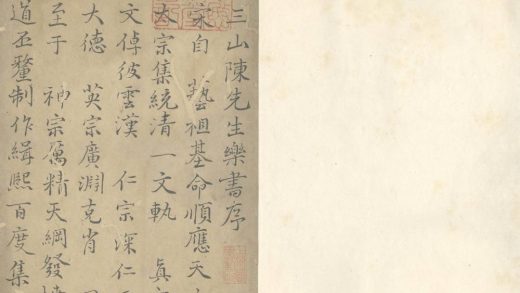 三山陳先生樂書序
宋自 藝祖基命順應天
太宗集統清一文軌 真
文倬彼雲漢 仁宗深仁
大德 英宗廣淵克肖
至于 神宗厲精天綱發
道丕釐制作緝熙百度集